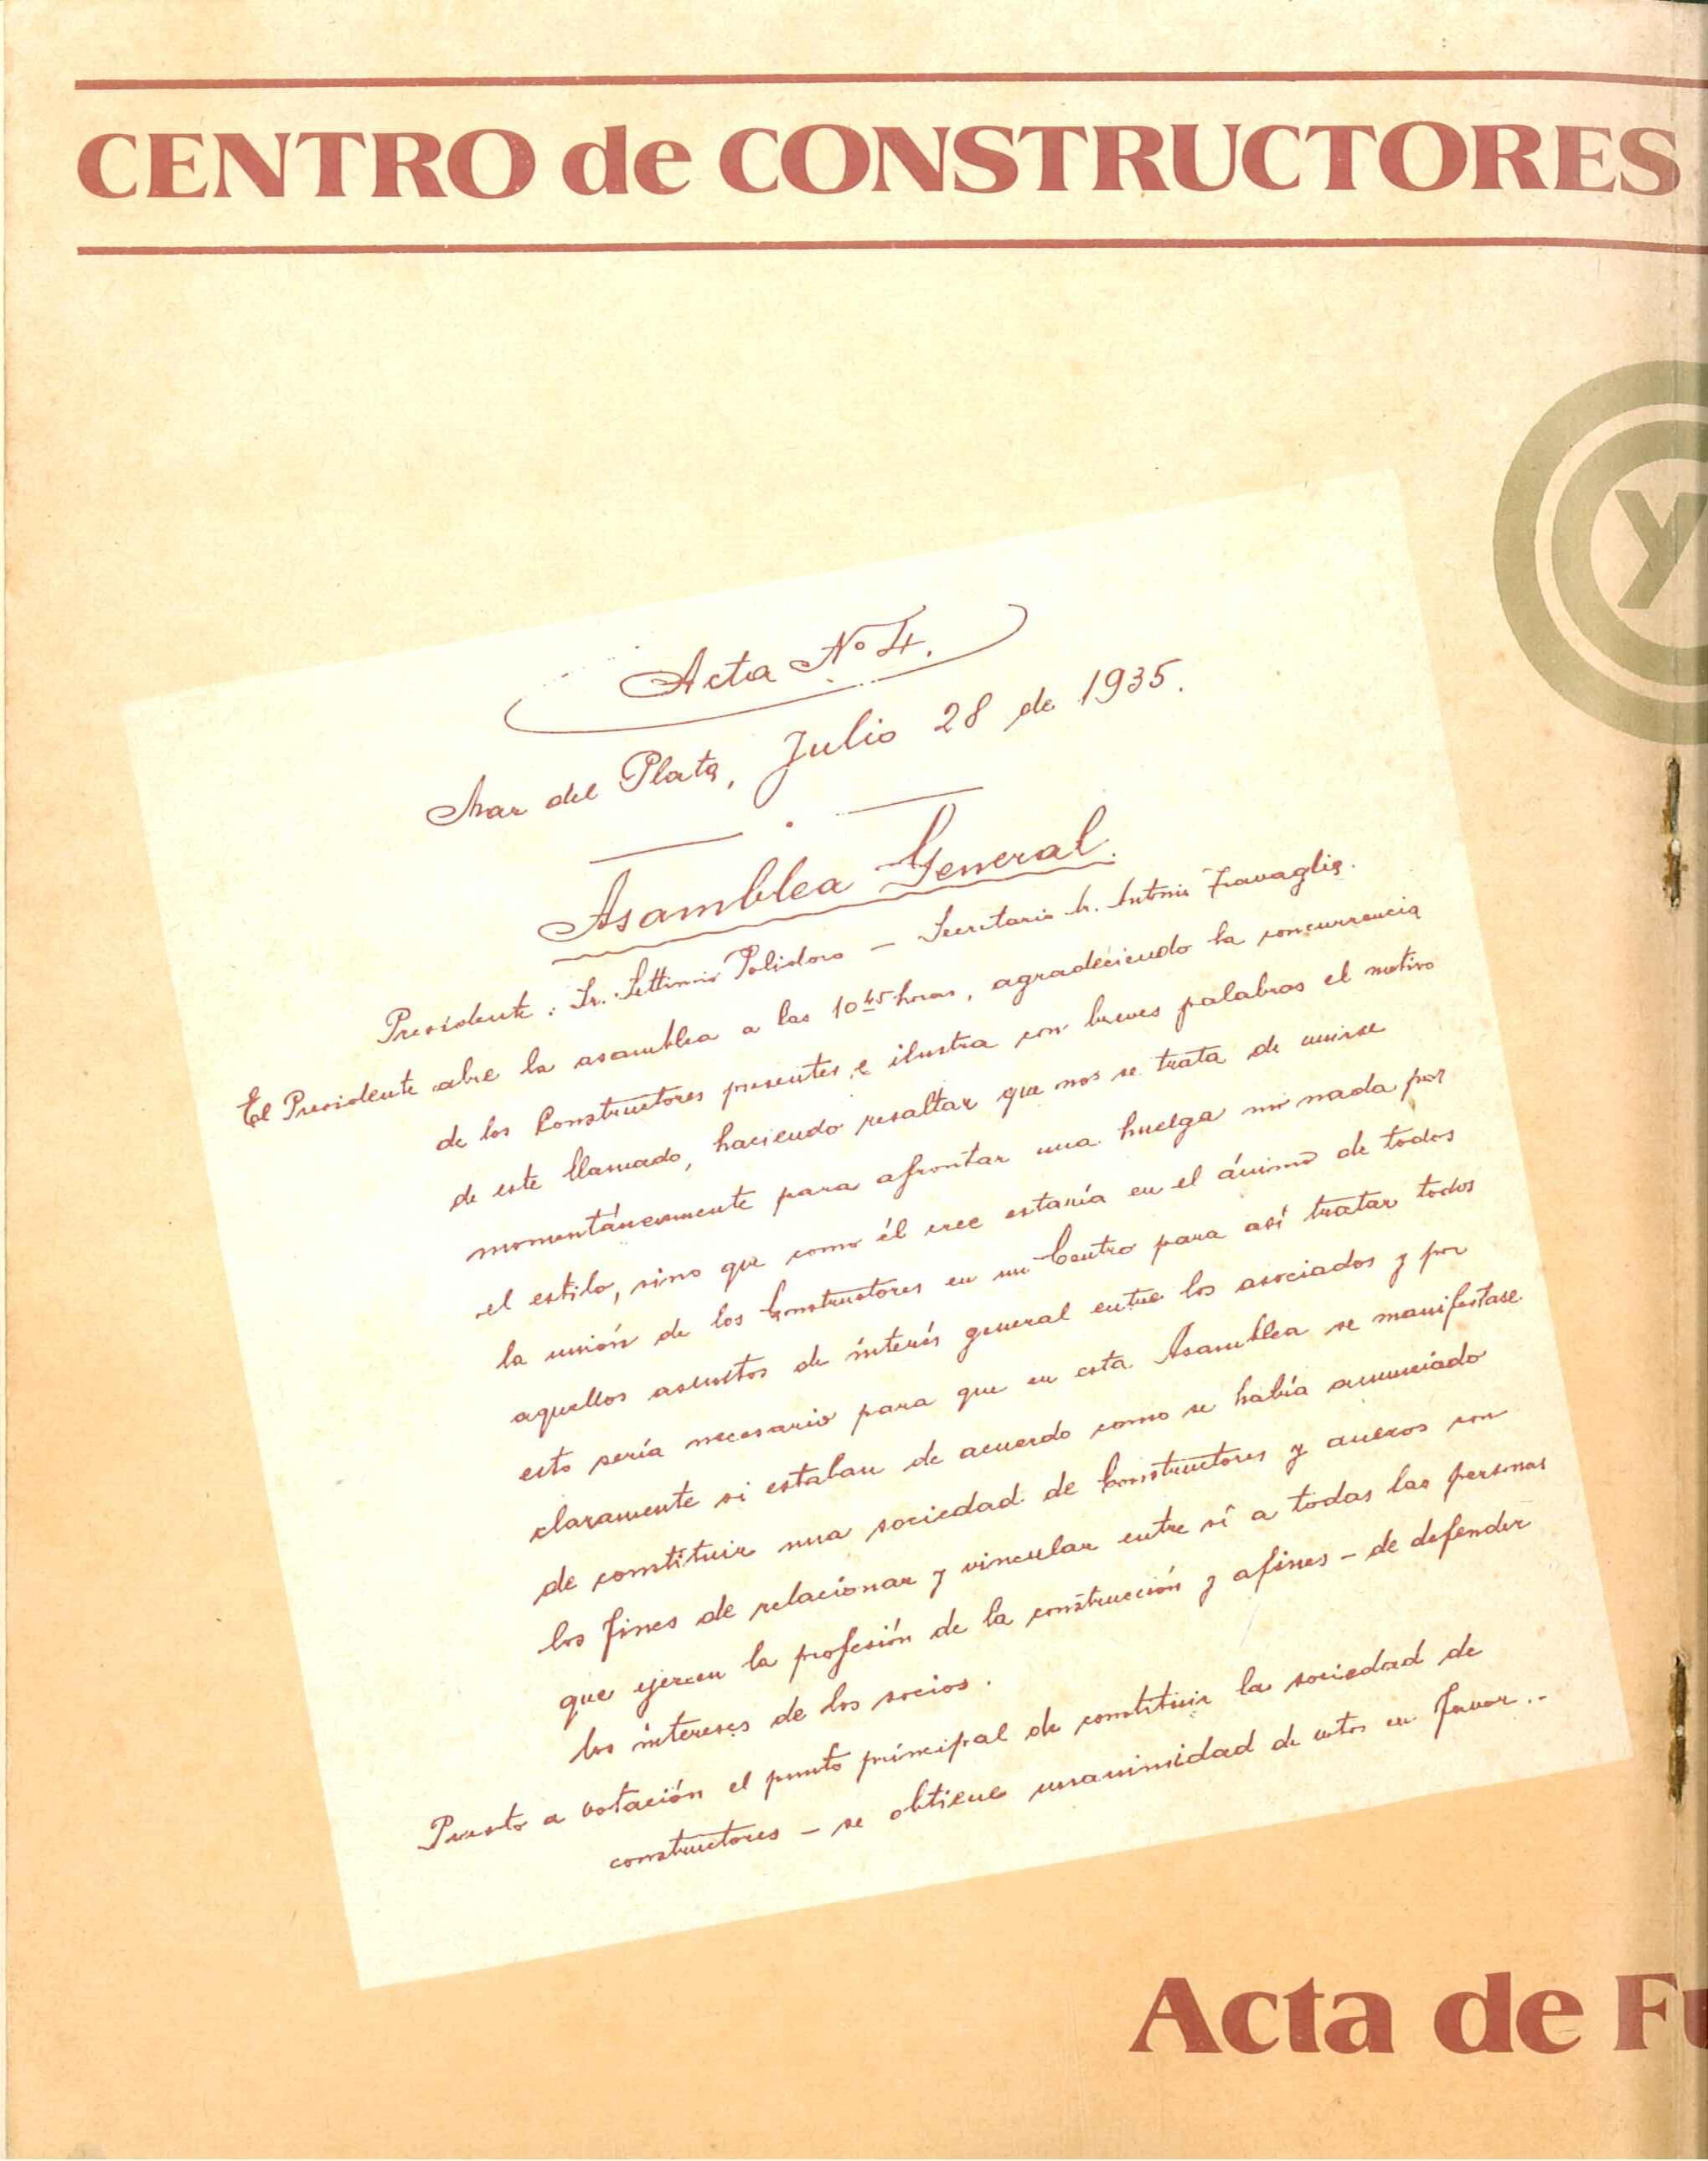 CENTRO de CONSTRUCTORES
y
Acta Nº 4.
Mar del Plata, Julio 28 de 1935.
Asamblea General.
Presidente: Sr. Settimio Polidoro — Secretario Sr. Antonio Travaglia.
El Presidente abre la asamblea a las 10 45 horas, agradeciendo la concurrencia
de los Constructores presentes e ilustra con breves palabras el motivo
de este llamado, haciendo resaltar que nos se trata de unirse
momentáneamente para afrontar una huelga ni nada por
el estilo, sino que como él cree estaría en el ánimo de todos
la unión de los Constructores en un Centro para así tratar todos
aquellos asuntos de interés general entre los asociados y por
esto sería necesario para que en esta Asamblea se manifestase
claramente si estaban de acuerdo como se había anunciado
de constituir una sociedad de Constructores y anexos con
los fines de relacionar y vincular entre sí a todas las personas
que ejercen la profesión de la construcción y afines – de defender
los intereses de los socios.
Puesto a votación el punto principal de constituir la sociedad de
constructores – se obtiene unanimidad de votos en favor.-
Acta de Fu